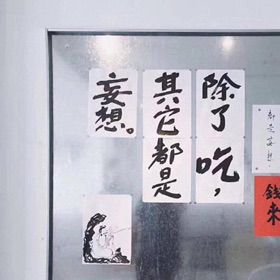 除了吃，
其它都是
妄想。
都是妄想.
錢来